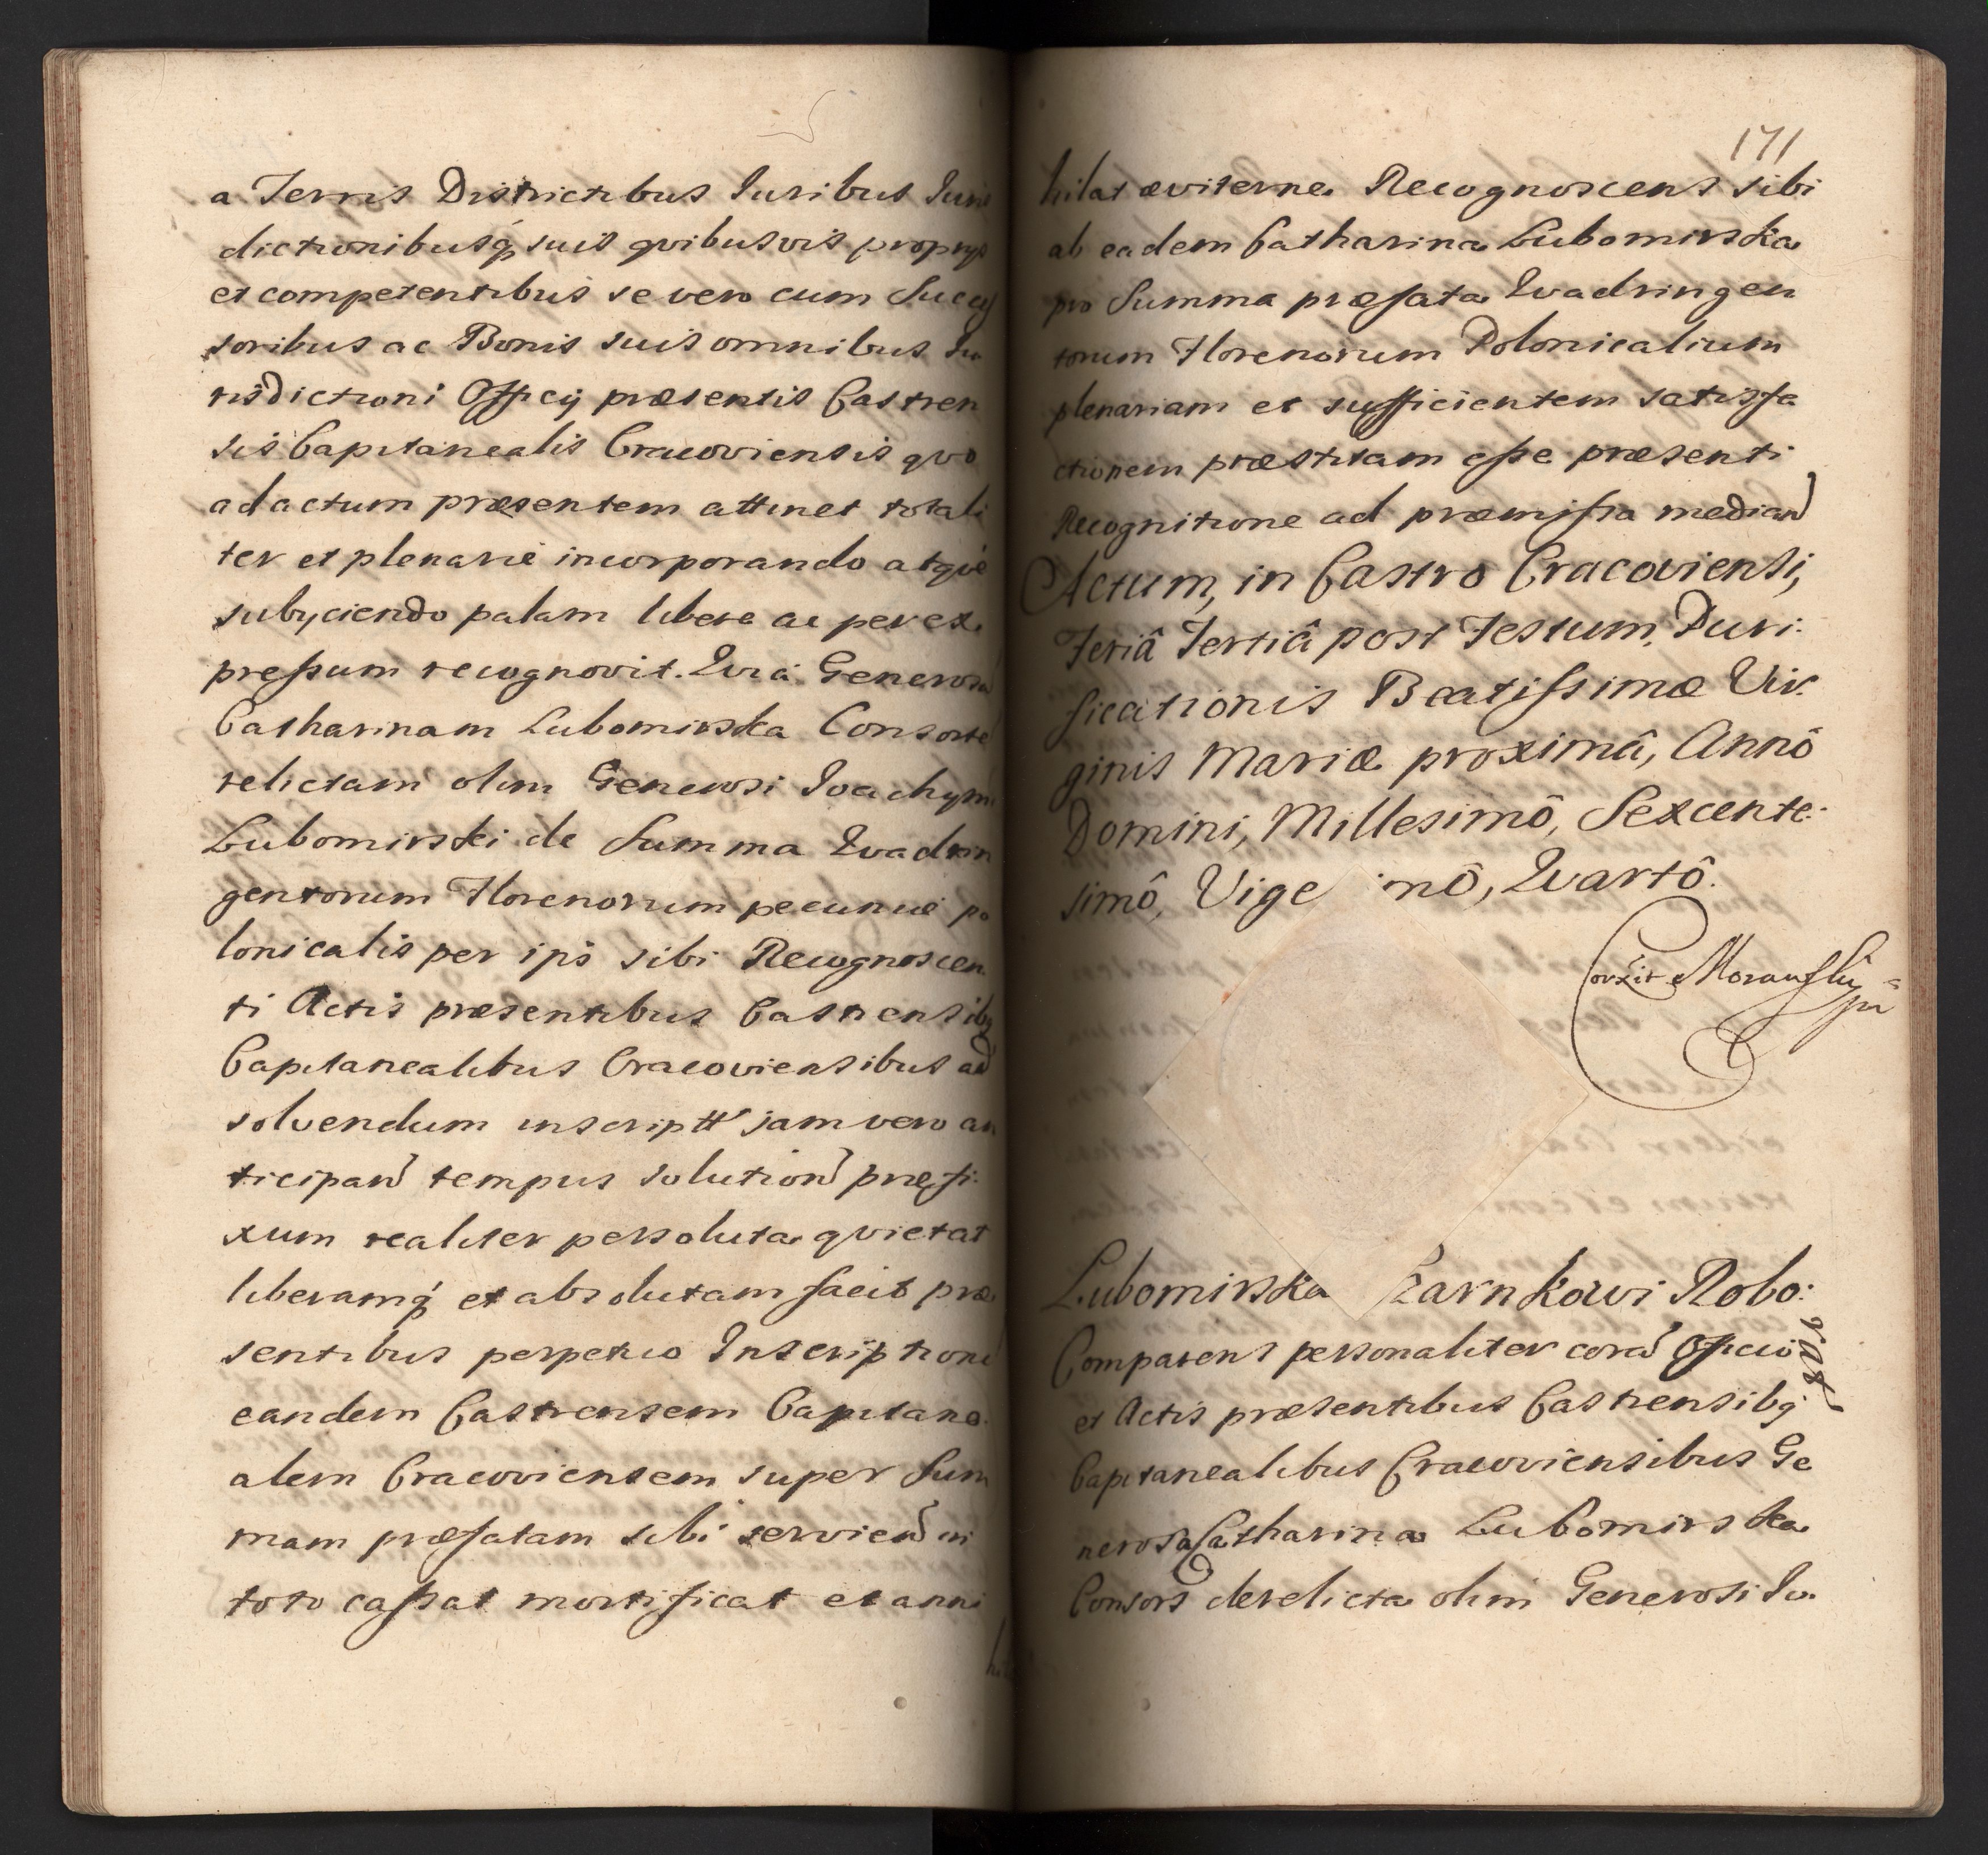 a Terris Districtibus Iuribus Iuris
dictionibusq́ suis qvibusvis proprijs
et competentibus se vero cum Succes
soribus ac Bonis suis omnibus Iu
risdictioni Officij præsentis Castren
sis Capitanealis Cracoviensis qvo
ad actum præsentem attinet totali
ter et plenarie incorporando atqve
subijciendo palam libere ac per ex
pressum recognovit. Qvia Generosa
Catharinam Lubomirska Consorte
relictam olim Generosi Ioachymi
Lubomirski de Summa Qvadrin
gentorum Florenorum pecuniæ po
lonicalis per ips sibi Recognoscen
ti Actis præsentibus Castrensibq
Capitanealibus Cracoviensibus ad
solvendum inscriptt jam vero an
ticipand tempus solution præfi
xum realiter persoluta qvietat
liberamq́ et absolutam facit præ
sentibus perpetuo Inscriptione
eandem Castrensem Capitane
alem Cracoviensem super Sum
mam præfatam sibi servien in
toto cassat mortificat et anni
171
hilat æviterne Recognoscens sibi
ab eadem Catharina Lubomirska
pro Summa præfata Qvadringen
torum Florenorum Polonicalium
plenariam et sufficientem satisfa
ctionem præstitam esse præsenti
Recognitione ad præmissa median
Actum, in Castro Cracoviensi,
Feriâ Tertiâ post Festum, Puri:
ficationis Beatissimæ Vir:
ginis Mariæ proximâ, Annô
Domini, Millesimô, Sexcente:
simô, Vige mô, Qvartô.
Corxit Morawski
Lubomirska Czarnkowi Robo:
Comparens personaliter cora Officio
et Actis præsentibus Castrensibq
Capitanealibus Cracoviensibus Ge
nerosa Catharina Lubomirska
Consors derelicta olim Generosi Io